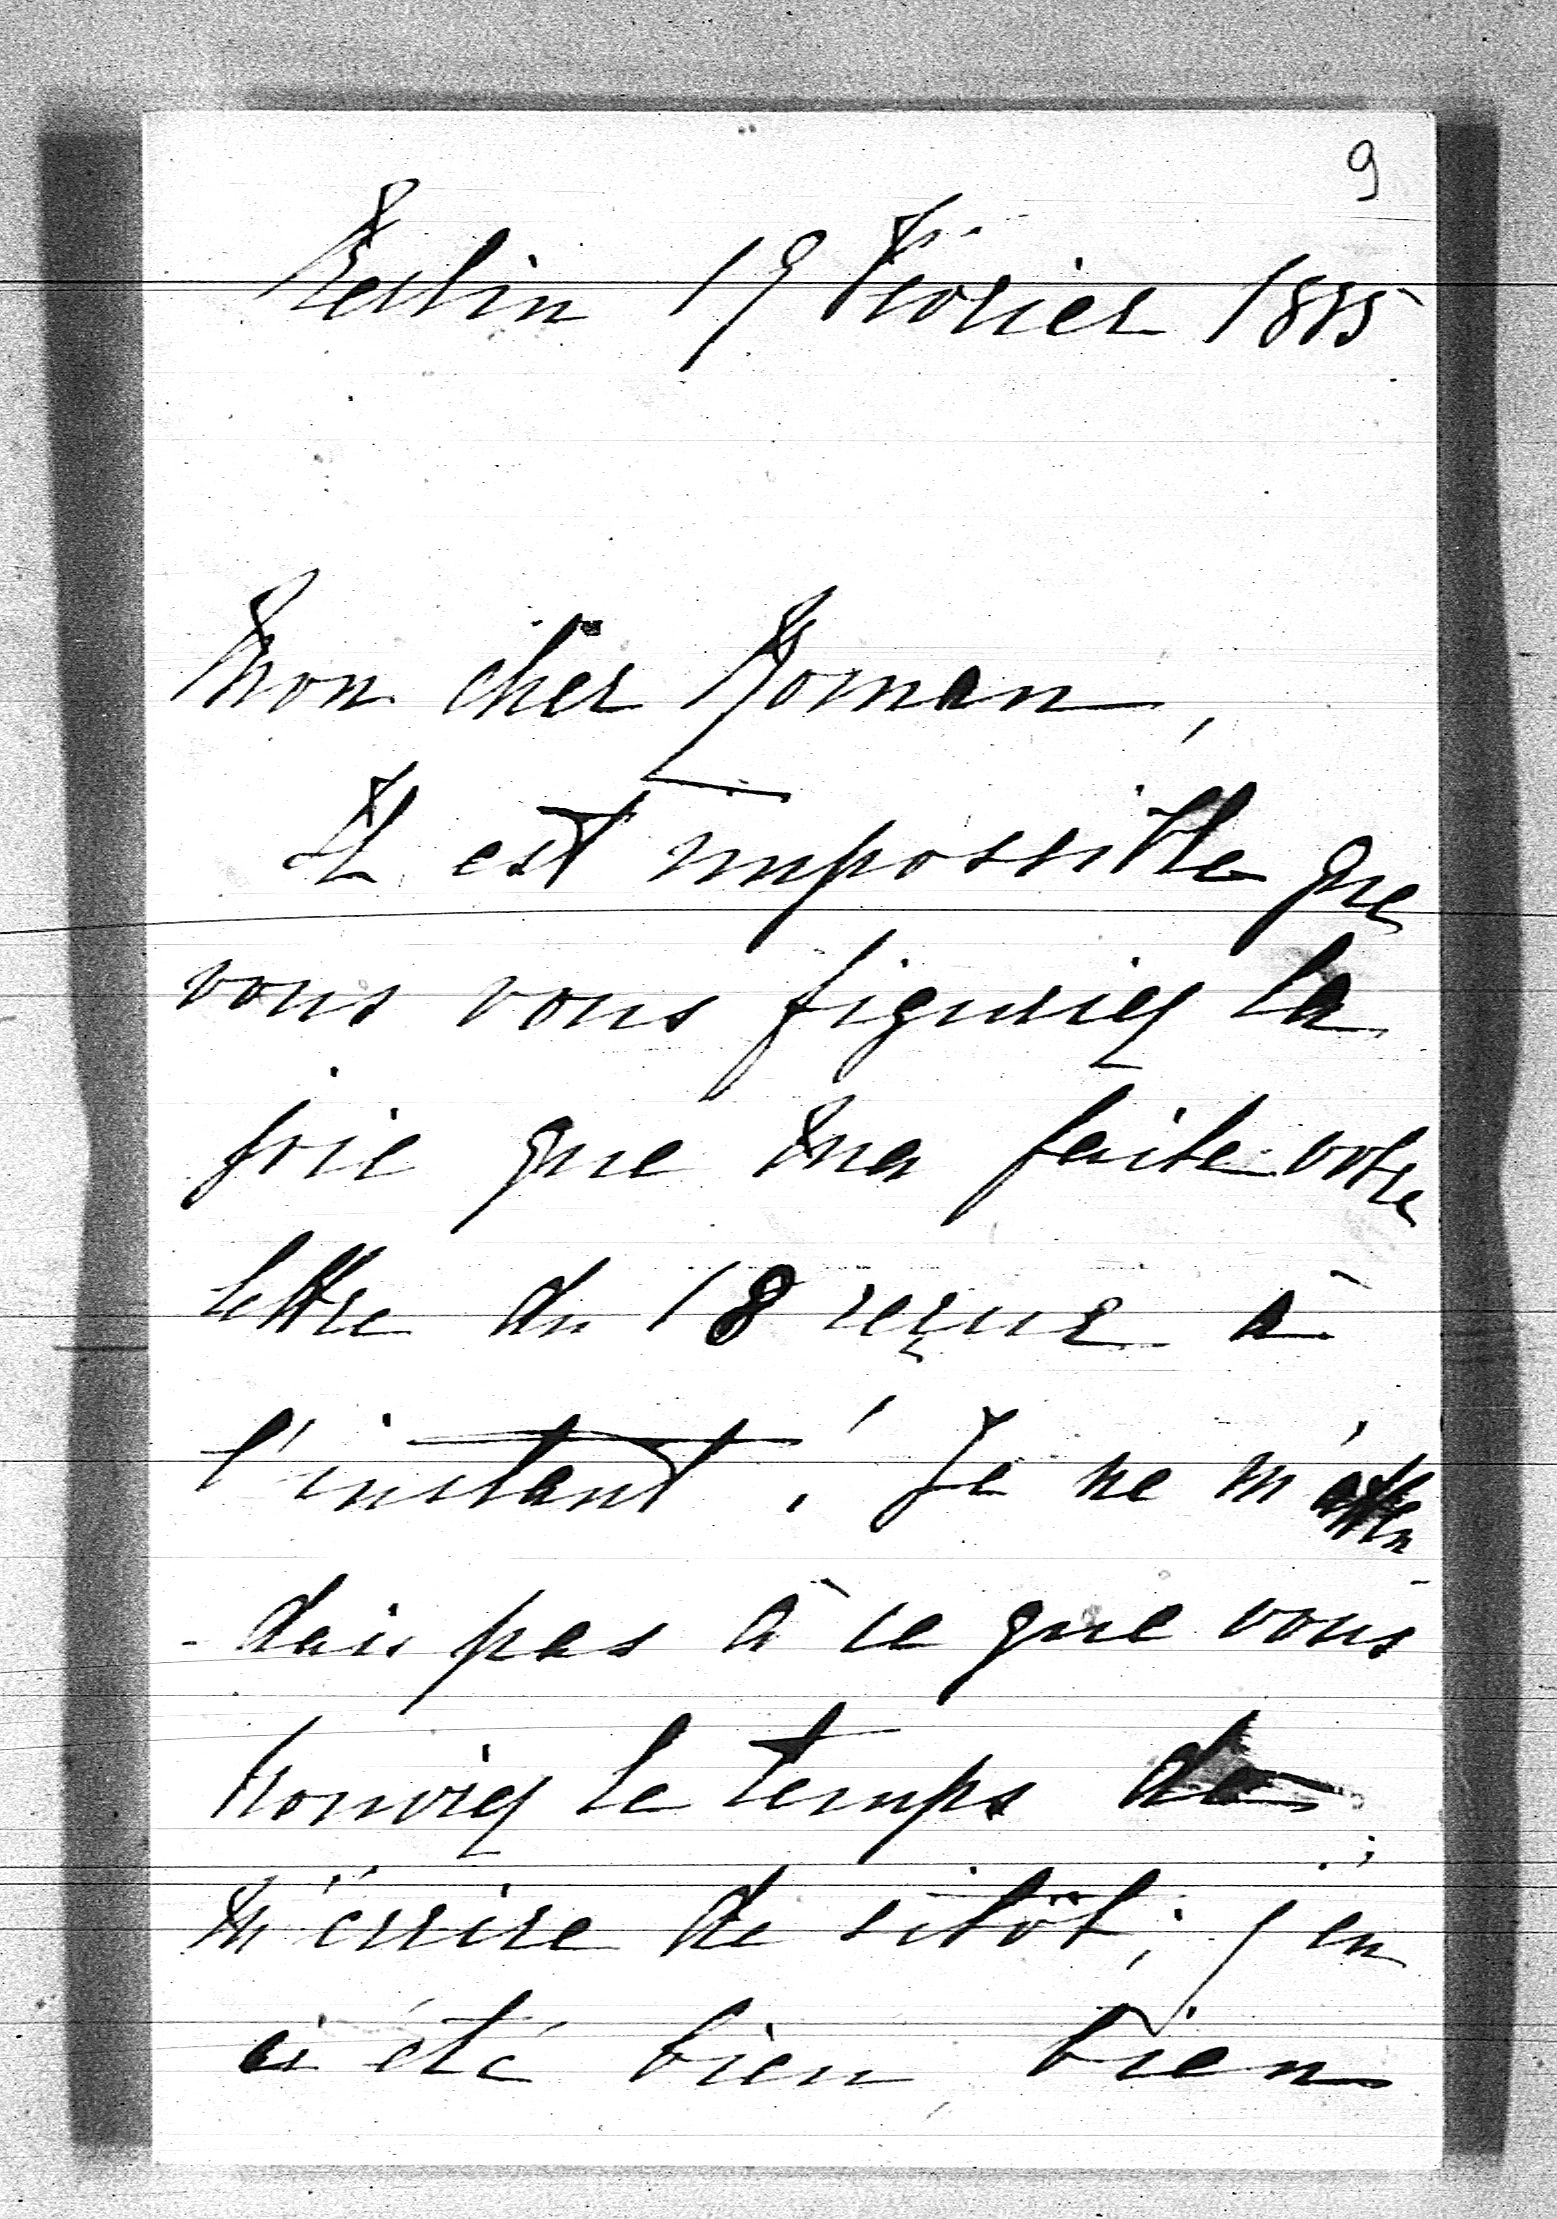 9
Berlin 19 Février 1885
Mon cher Roman,
Il est impossible que
vous vous figuriez la
joie que m'a faite votre
lettre du 18 reçue à
l'instant! Je ne m'atten
-dais pas à ce que vous
trouviez le temps de
m'écrire de sitôt; j'en
ai été bien, bien